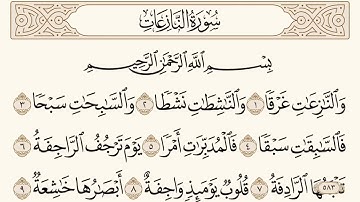 سُورَةُ النَّازِعَاتِ
بِسْمِ اللَّهِ الرَّحْمَٰنِ الرَّحِيمِ
وَالنَّازِعَاتِ غَرْقًا ١ وَالنَّاشِطَاتِ نَشْطًا ٢ وَالسَّابِحَاتِ سَبْحًا ٣
فَالسَّابِقَاتِ سَبْقًا ٤ فَالْمُدَبِّرَاتِ أَمْرًا ٥ يَوْمَ تَرْجُفُ الرَّاجِفَةُ ٦
تَتْبَعُهَا الرَّادِفَةُ ٧ قُلُوبٌ يَوْمَئِذٍ وَاجِفَةٌ ٨ أَبْصَارُهَا خَاشِعَةٌ ٩
٥٨٣